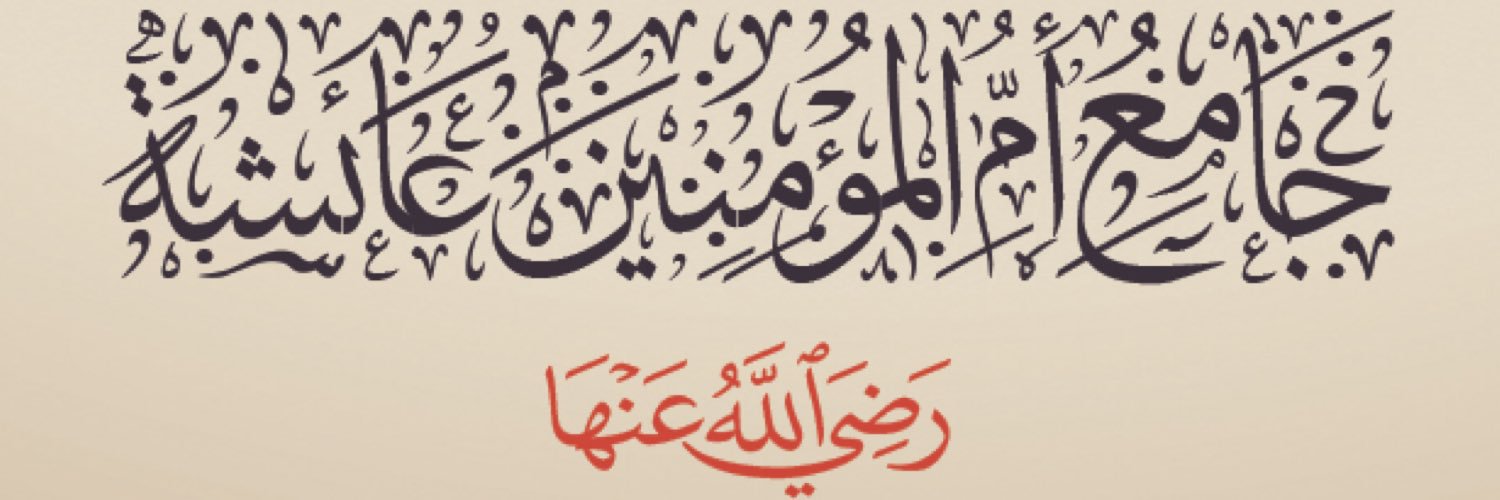 جَامِعُ أُمِّ الْمُؤْمِنِينَ عَائِشَةَ
رَضِيَ ٱللَّهُ عَنْهَا